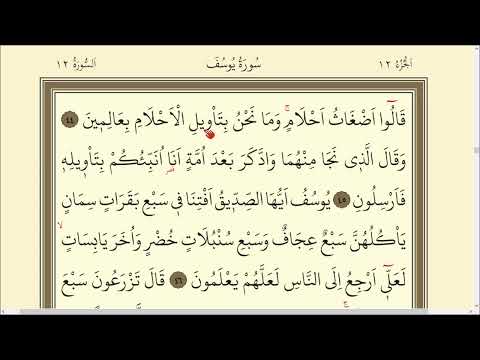 اَلْجُزْءُ ١٢ سُورَةُ يُوسُفَ اَلسُّورَةُ ١٢
قَالُٓوا اَضْغَاثُ اَحْلَامٍۚ وَمَا نَحْنُ بِتَأْو۪يلِ الْاَحْلَامِ بِعَالِم۪ينَ ٤٤
وَقَالَ الَّذ۪ي نَجَا مِنْهُمَا وَادَّكَرَ بَعْدَ اُمَّةٍ اَنَا۬ اُنَبِّئُكُمْ بِتَأْو۪يلِه۪
فَاَرْسِلُونِ ٤٥ يُوسُفُ اَيُّهَا الصِّدّ۪يقُ اَفْتِنَا ف۪ي سَبْعِ بَقَرَاتٍ سِمَانٍ
يَأْكُلُهُنَّ سَبْعٌ عِجَافٌ وَسَبْعِ سُنْبُلَاتٍ خُضْرٍ وَاُخَرَ يَابِسَاتٍۙ
لَعَلّ۪ٓي اَرْجِعُ اِلَى النَّاسِ لَعَلَّهُمْ يَعْلَمُونَ ٤٦ قَالَ تَزْرَعُونَ سَبْعَ